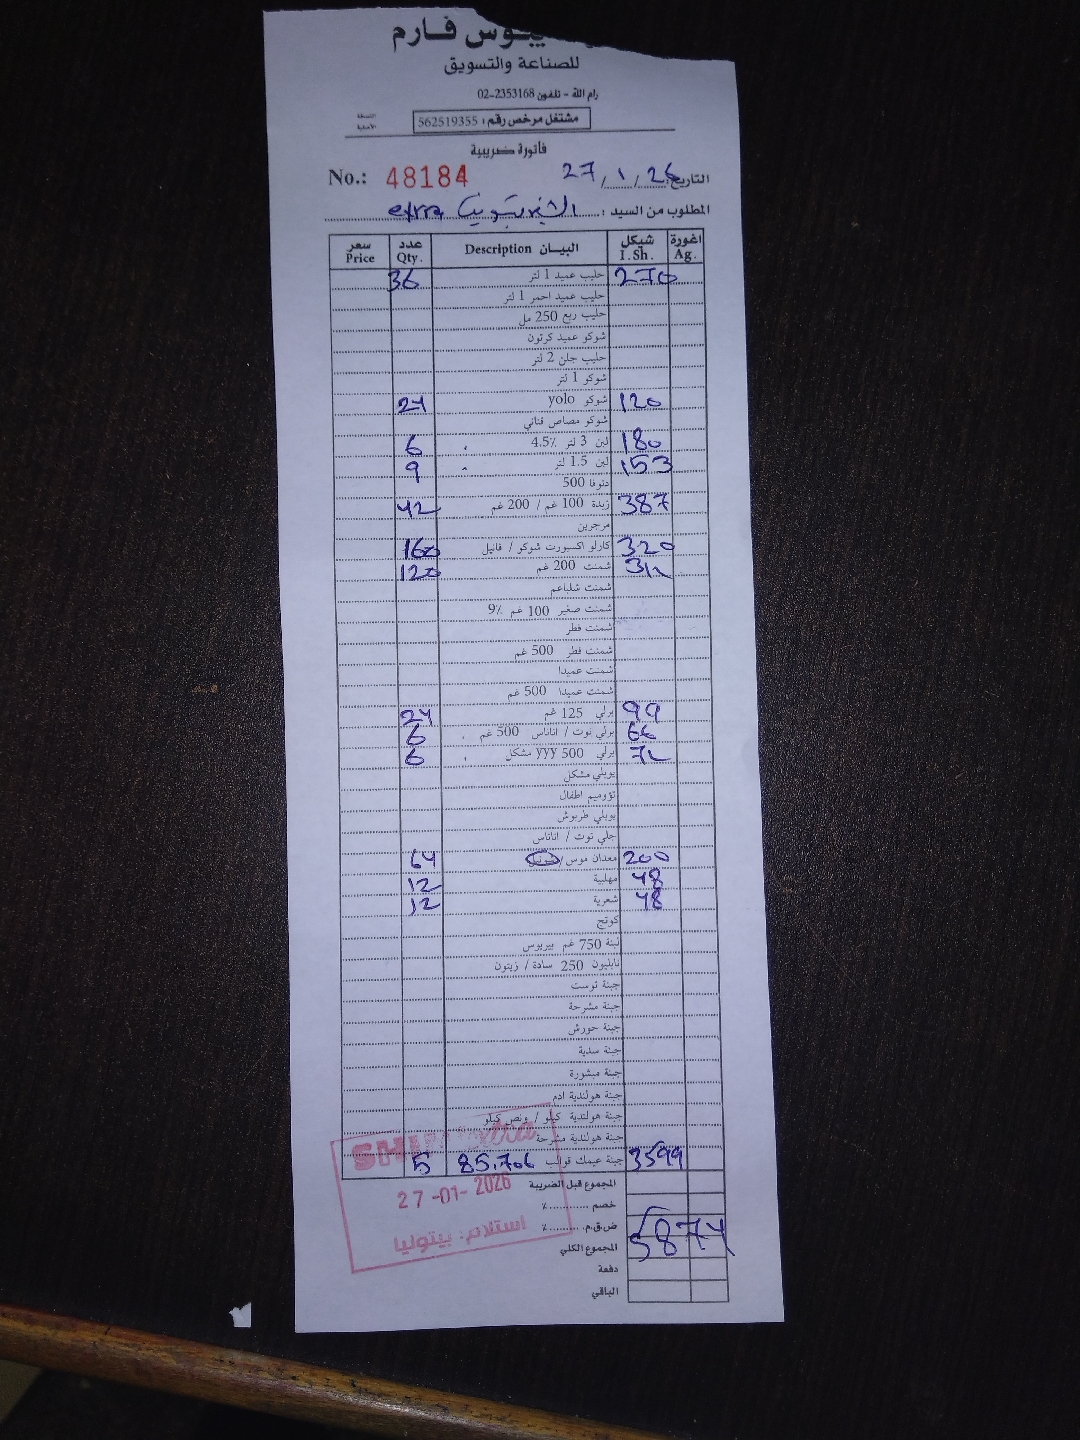 يبوس فارم
للصناعة والتسويق
رام الله - تلفون 02-2353168
مشتغل مرخص رقم: 562519355
النسخة الأصلية
فاتورة ضريبية
No.: 48184
التاريخ: 27/1/26
المطلوب من السيد: extra
سعر Price عدد Qty. البيـــان Description شيكل I. Sh. اغورة Ag.
36 حليب عميد 1 لتر 270
حليب عميد احمر 1 لتر
حليب ربع 250 مل
شوكو عميد كرتون
حليب جلن 2 لتر
شوكو 1 لتر
24 شوكو yolo 120
شوكو مصاص قناني
6 لبن 3 لتر 4.5٪ 180
9 لبن 1.5 لتر 153
دنوفا 500
42 زبدة 100 غم / 200 غم 387
مرجرين
160 كارلو اكسبورت شوكو / فانيل 320
120 شمنت 200 غم 312
شمنت شلباعم
شمنت صغير 100 غم 9٪
شمنت فطر
شمنت فطر 500 غم
شمنت عميدا
شمنت عميدا 500 غم
24 برلي 125 غم 99
6 برلي توت / اناناس 500 غم 66
6 برلي 500 yyy مشكل 72
يوبلي مشكل
تؤوميم اطفال
يوبلي طربوش
جلي توت / اناناس
64 معدان موس / 200
12 مهلبية 48
12 شعرية 48
كوتج
لبنة 750 غم بيربوس
نابليون 250 سادة / زيتون
جبنة توست
جبنة مشرحة
جبنة حورش
جبنة سدية
جبنة مبشورة
جبنة هولندية ادم
جبنة هولندية كيلو / ونص كيلو
جبنة هولندية مشرحة
5 85.706 جبنة عيمك قوالب 3599
المجموع قبل الضريبة
خصم .......... ٪
ض.ق.م. .......... ٪
المجموع الكلي 5874
دفعة
الباقي
27-01-2026
استلام: بيتونيا